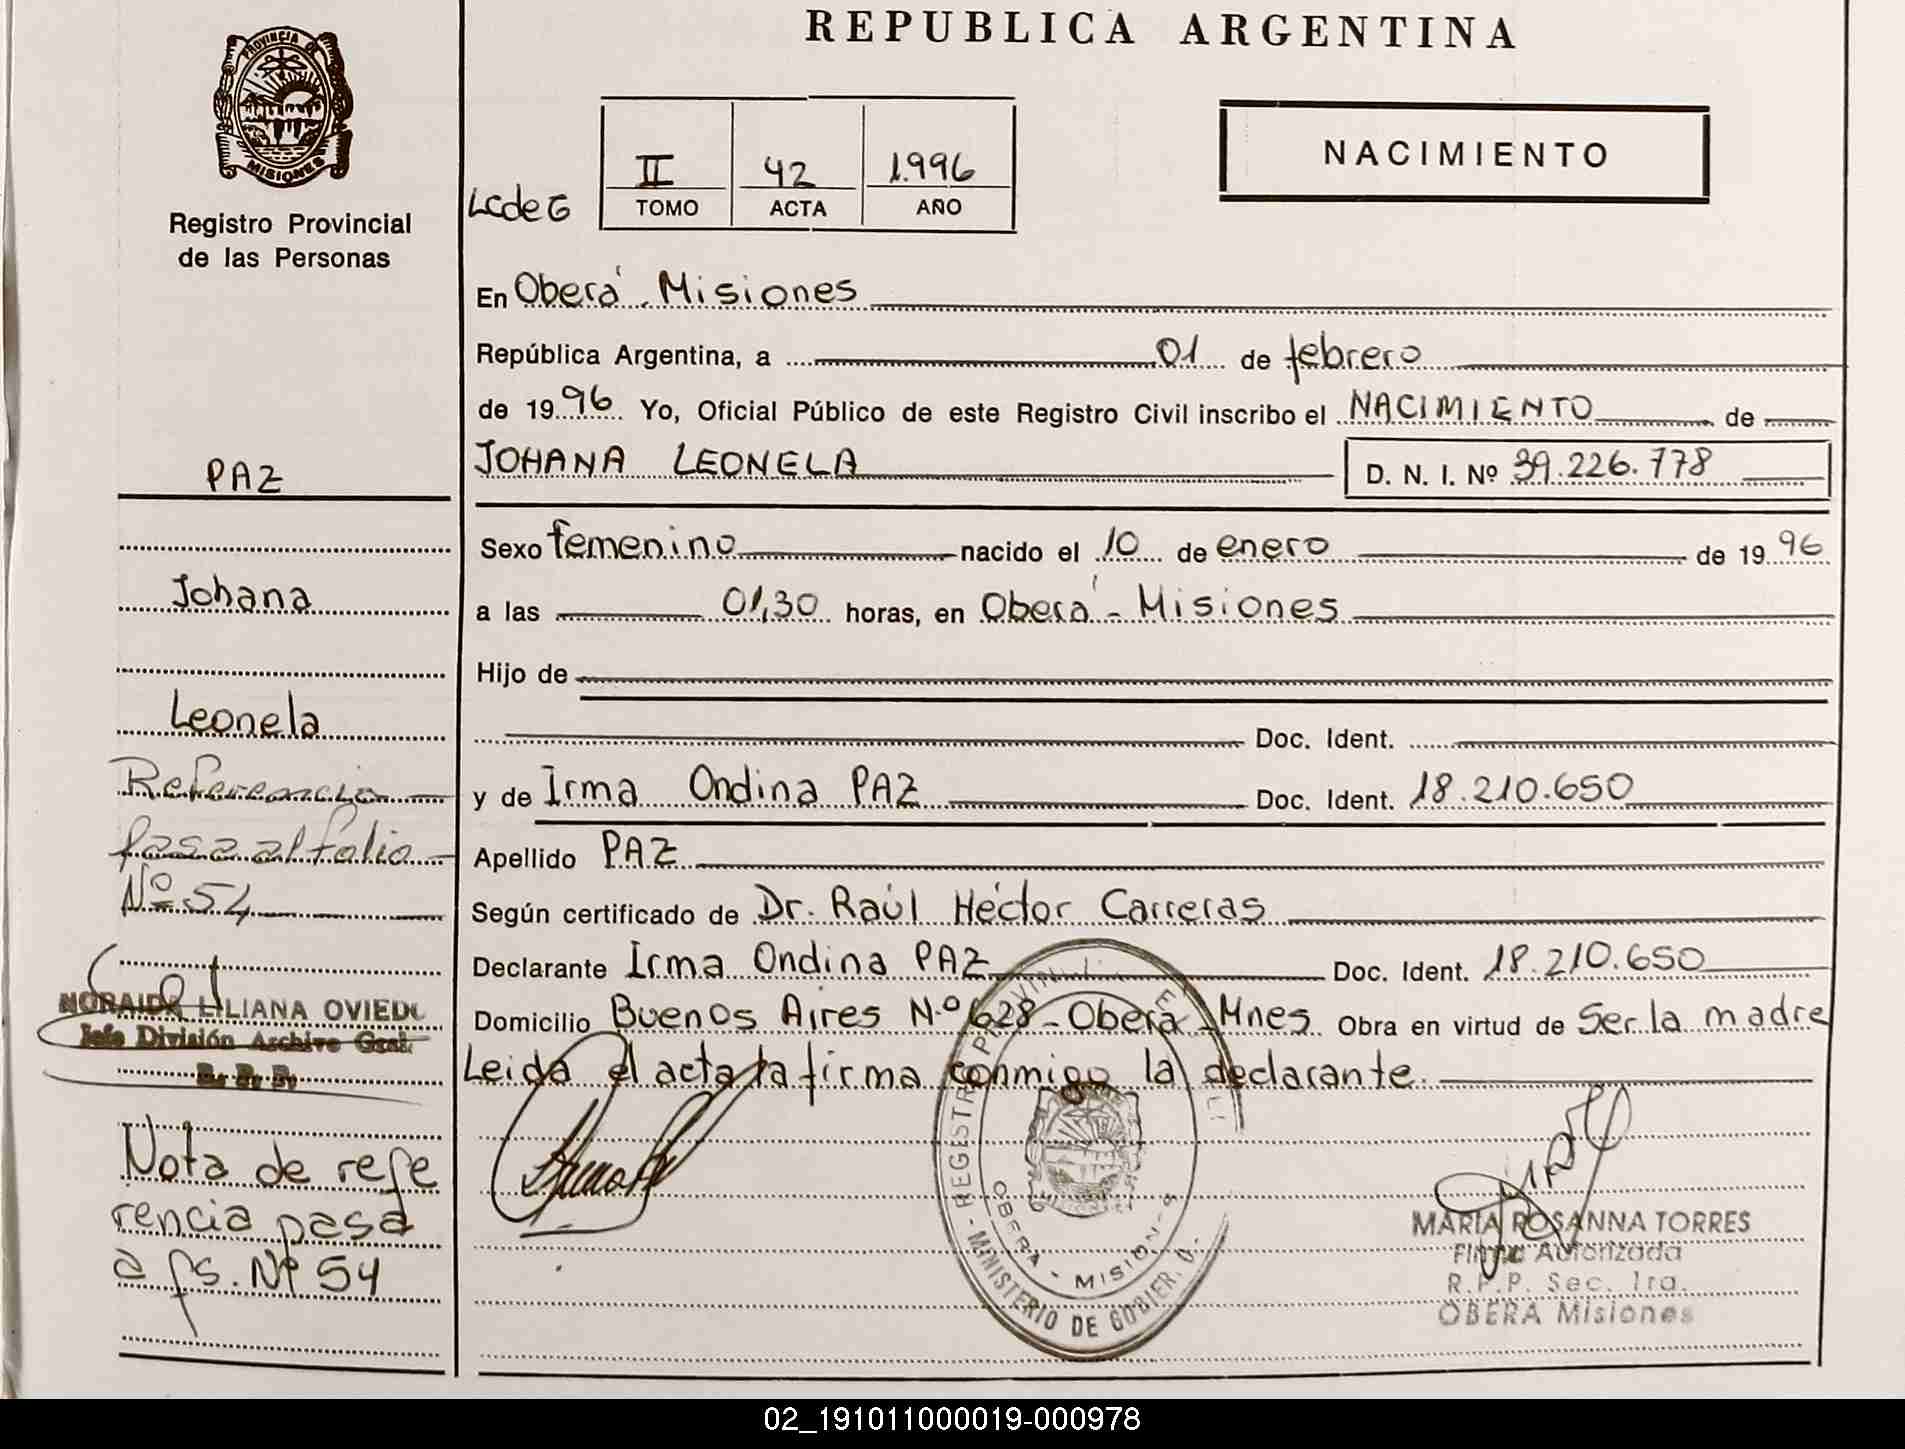 REPUBLICA ARGENTINA
PROVINCIA DE
MISIONES
Registro Provincial
de las Personas
LCdeG
II 42 1.996
TOMO ACTA AÑO
NACIMIENTO
En Oberá. Misiones
República Argentina, a 01 de febrero
de 1996 Yo, Oficial Público de este Registro Civil inscribo el NACIMIENTO de
JOHANA LEONELA D. N. I. Nº 39.226.778
Sexo femenino nacido el 10 de enero de 1996
a las 01,30 horas, en Oberá - Misiones
Hijo de
Doc. Ident.
y de Irma Ondina PAZ Doc. Ident. 18.210.650
Apellido PAZ
Según certificado de Dr. Raúl Héctor Carreras
Declarante Irma Ondina PAZ Doc. Ident. 18.210.650
Domicilio Buenos Aires N.º 628 - Oberá - Mnes. Obra en virtud de Ser la madre
Leida el acta la firma conmigo la declarante.
PAZ
Johana
Leonela
Referencia
pasa al folio
Nº 54
NORAIDA LILIANA OVIEDO
Jefe División Archivo Gral.
Nota de refe
rencia pasa
a fs. Nº 54
MINISTERIO DE GOBIER.
OBERA - MISIONES
MARIA ROSANNA TORRES
Firma Autorizada
R.P.P. Sec. 1ra.
OBERA Misiones
02_191011000019-000978